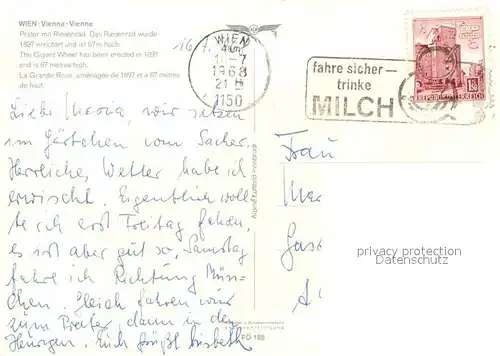 WIEN · Vienna · Vienne
Prater mit Riesenrad. Das Riesenrad wurde
1897 errichtet und ist 67m hoch.
The Gigant Wheel has been erected in 1897
and is 67 metres high.
La Grande Roue, aménagée de 1897 a 67 mètres
de haut.
WIEN
1968
1150
fahre sicher —
trinke
MILCH
REPUBLIK ÖSTERREICH
Liebe Maria, wir sitzen
im Gärtchen vom Sacher.
Herrliches Wetter habe ich
erwischt. Eigentlich woll-
te ich erst Freitag fahren,
es ist aber gut so, Samstag
fahre ich Richtung Mün-
chen. Gleich fahren wir
zum Prater dann in den
Heurigen. Euch grüßt Lisbeth
Alpine Luftbild Innsbruck
FO 185
Frau
privacy protection
Datenschutz